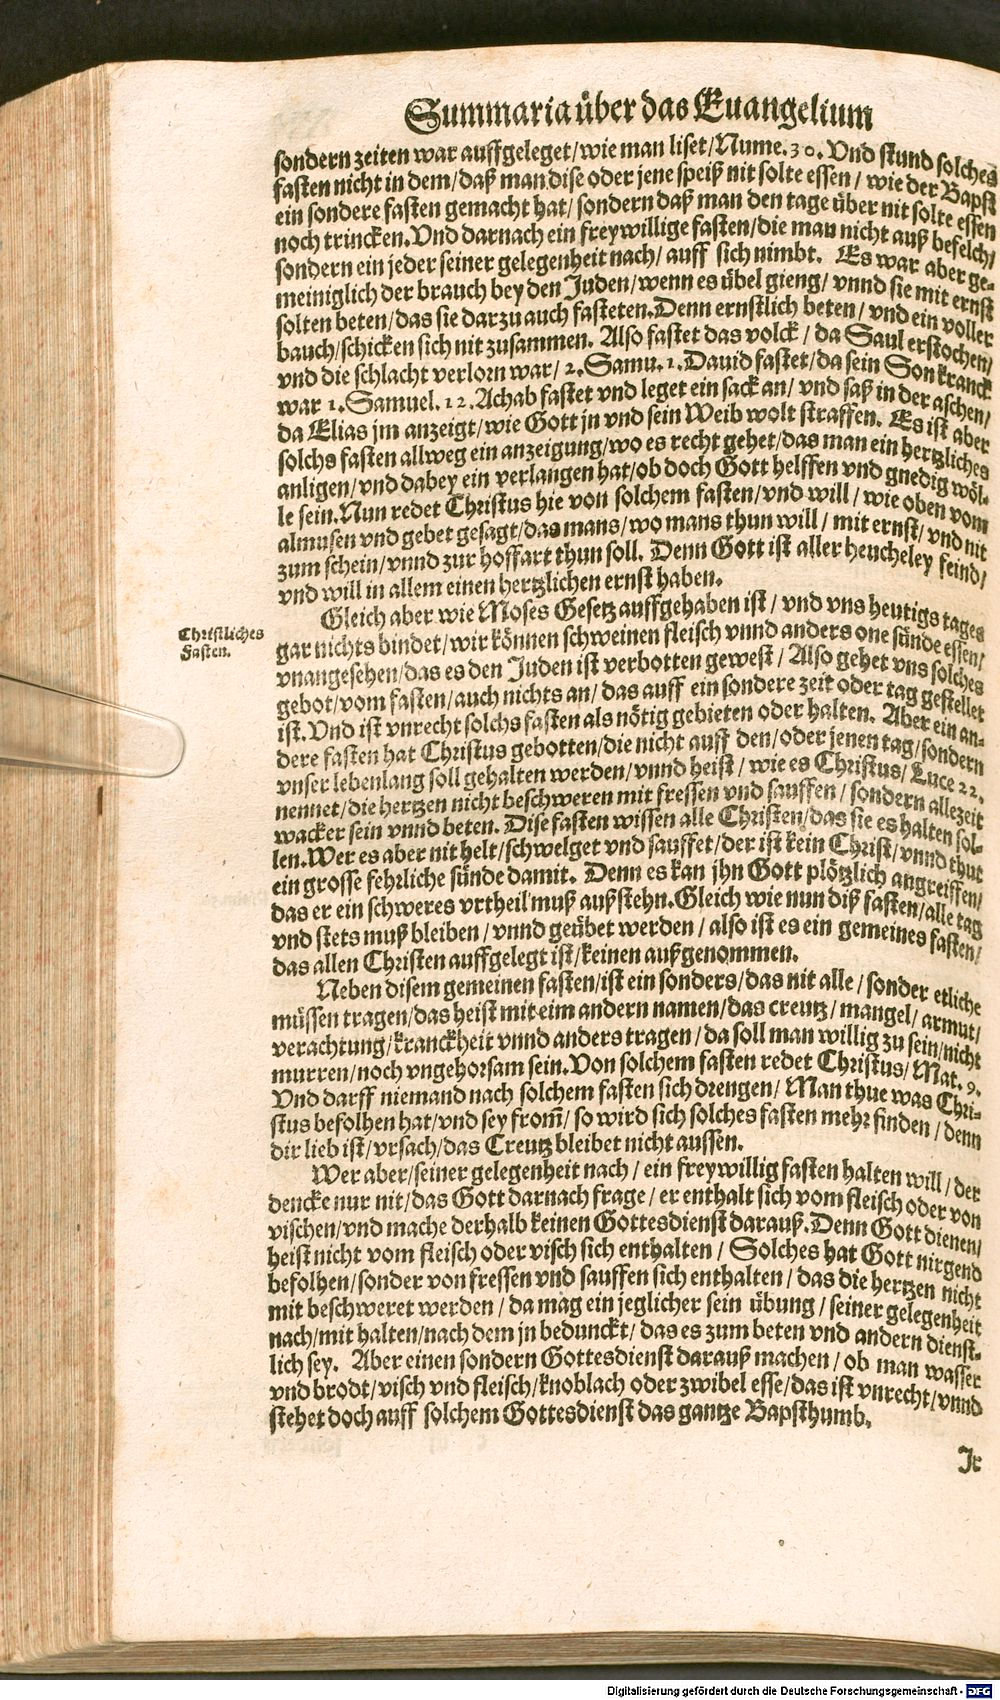 Summaria über das Euangelium
sondern zeiten war auffgeleget/wie man liset/Nume. 30. Vnd stund solches
fasten nicht in dem/daß man dise oder jene speiß nit solte essen/ wie der Bapst
ein sondere fasten gemacht hat/ sondern daß man den tage über nit solte essen
noch trincken. Vnd darnach ein freywillige fasten/die man nicht auß befelch/
sondern ein jeder seiner gelegenheit nach/ auff sich nimbt. Es war aber ge-
meiniglich der brauch bey den Juden/wenn es übel gieng/ vnnd sie mit ernst
solten beten/das sie darzu auch fasteten. Denn ernstlich beten/ vnd ein voller
bauch/schicken sich nit zusammen. Also fastet das volck/ da Saul erstochen/
vnd die schlacht verlorn war/ 2. Samu. 1. Dauid fastet/da sein Son kranck
war 1. Samuel. 12. Achab fastet vnd leget ein sack an/ vnd saß in der aschen/
da Elias jm anzeigt/wie Gott jn vnd sein Weib wolt straffen. Es ist aber
solchs fasten allweg ein anzeigung/wo es recht gehet/das man ein hertzliches
anligen/vnd dabey ein verlangen hat/ob doch Gott helffen vnd gnedig wöl-
le sein. Nun redet Christus hie von solchem fasten/vnd will/ wie oben vom
almusen vnd gebet gesagt/das mans/wo mans thun will/ mit ernst/vnd nit
zum schein/vnnd zur hoffart thun soll. Denn Gott ist aller heucheley feind/
vnd will in allem einen hertzlichen ernst haben.
Gleich aber wie Moses Gesetz auffgehaben ist/ vnd vns heutigs tages
Christliches
Fasten.
gar nichts bindet/wir können schweinen fleisch vnnd anders one sünde essen/
vnangesehen/das es den Juden ist verbotten gewest/ Also gehet vns solches
gebot/vom fasten/auch nichts an/ das auff ein sondere zeit oder tag gestellet
ist. Vnd ist vnrecht solchs fasten als nötig gebieten oder halten. Aber ein an-
dere fasten hat Christus gebotten/die nicht auff den/oder jenen tag/sondern
vnser lebenlang soll gehalten werden/vnnd heist/ wie es Christus/ Luce 22.
nennet/die hertzen nicht beschweren mit fressen vnd sauffen/ sondern allezeit
wacker sein vnnd beten. Dise fasten wissen alle Christen/das sie es halten sol-
len. Wer es aber nit helt/schwelget vnd sauffet/der ist kein Christ/vnnd thut
ein grosse fehrliche sünde damit. Denn es kan jhn Gott plötzlich angreiffen/
das er ein schweres vrtheil muß außstehn. Gleich wie nun diß fasten/alle tag
vnd stets muß bleiben/ vnnd geübet werden/ also ist es ein gemeines fasten/
das allen Christen auffgelegt ist/keinen außgenommen.
Neben disem gemeinen fasten/ist ein sonders/das nit alle/ sonder etliche
müssen tragen/das heist mit eim andern namen/das creutz/ mangel/ armut/
verachtung/kranckheit vnnd anders tragen/da soll man willig zu sein/nicht
murren/noch vngehorsam sein. Von solchem fasten redet Christus/ Mat. 9.
Vnd darff niemand nach solchem fasten sich drengen/ Man thue was Chri-
stus befolhen hat/vnd sey from̃/ so wird sich solches fasten mehr finden/ denn
dir lieb ist/vrsach/das Creutz bleibet nicht aussen.
Wer aber/seiner gelegenheit nach/ ein freywillig fasten halten will/ der
dencke nur nit/das Gott darnach frage/ er enthalt sich vom fleisch oder von
vischen/vnd mache derhalb keinen Gottesdienst darauß. Denn Gott dienen/
heist nicht vom fleisch oder visch sich enthalten/ Solches hat Gott nirgend
befolhen/sonder von fressen vnd sauffen sich enthalten/ das die hertzen nicht
mit beschweret werden/ da mag ein jeglicher sein übung/ seiner gelegenheit
nach/mit halten/nach dem jn bedunckt/ das es zum beten vnd andern dienst-
lich sey. Aber einen sondern Gottesdienst darauß machen/ ob man wasser
vnd brodt/visch vnd fleisch/knoblach oder zwibel esse/das ist vnrecht/vnnd
stehet doch auff solchem Gottesdienst das gantze Bapsthumb.
Jr
Digitalisierung gefördert durch die Deutsche Forschungsgemeinschaft - DFG